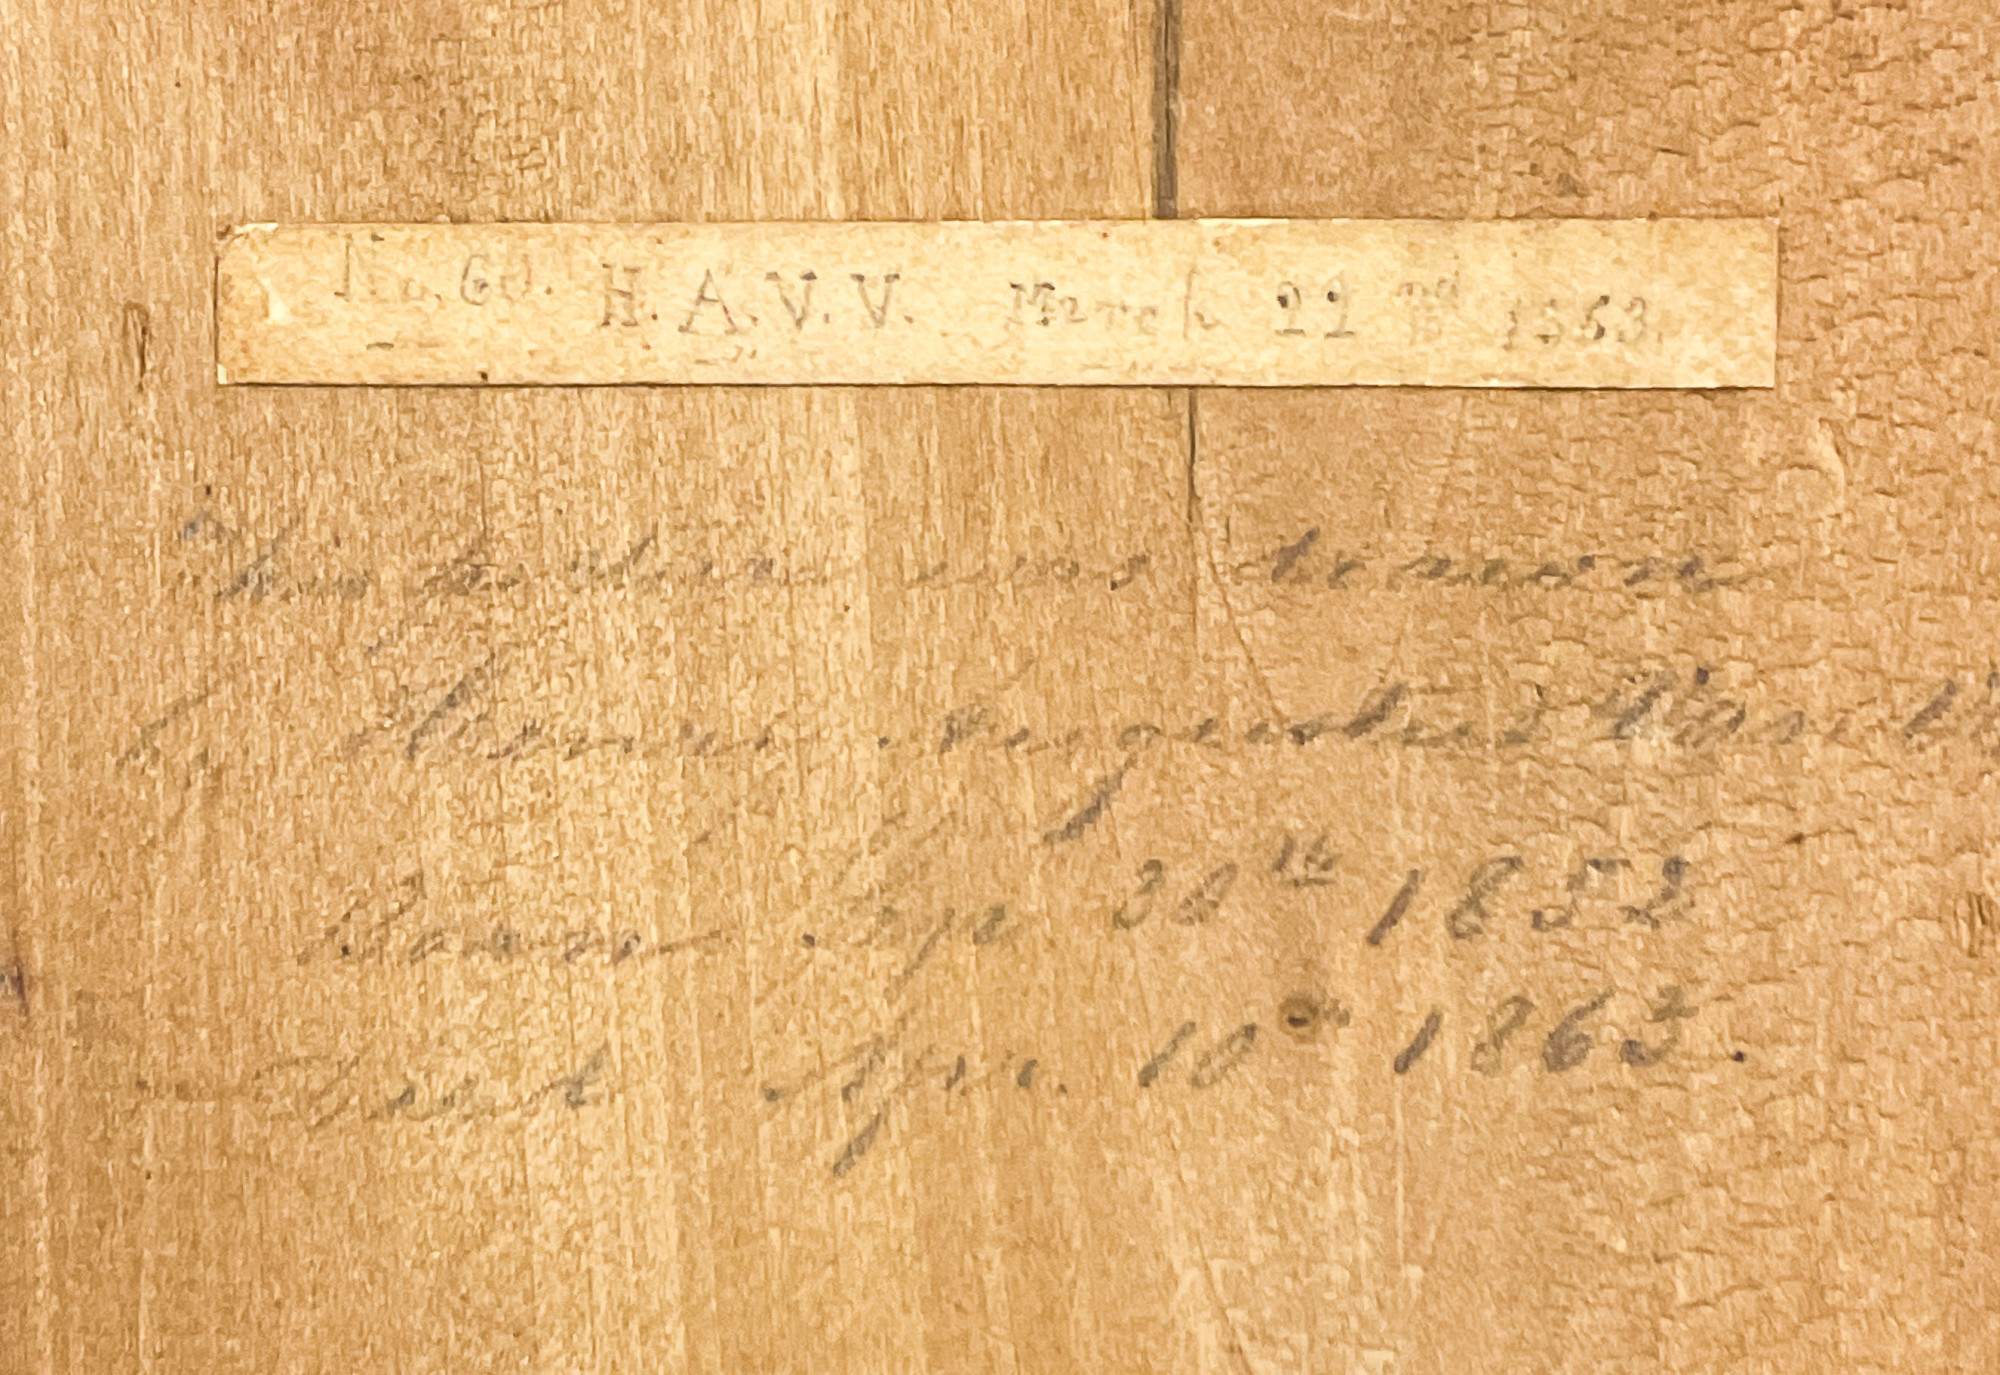 No. 60. H. A. V. V. March 22nd 1863.
was drawn
by Henri Augustus Van V
Born Sep 30th 1852
Died Apr. 10th 1863.